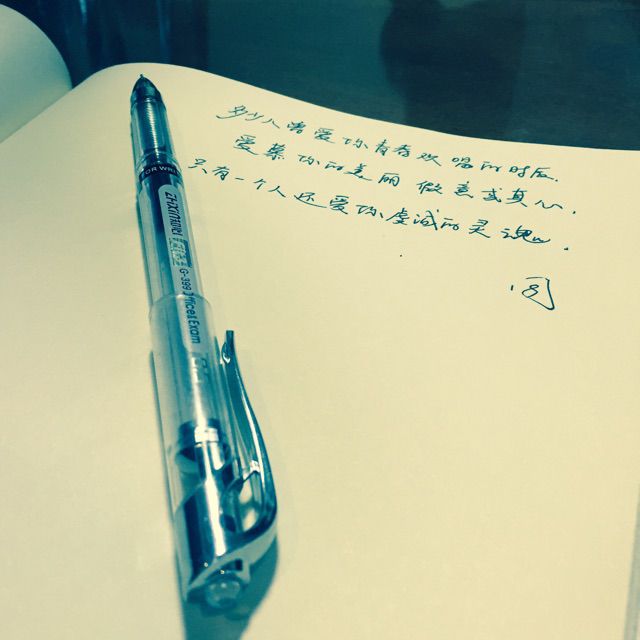 多少人曾爱你青春欢唱的时辰.
爱慕你的美丽 假意或真心.
只有一个人还爱你虔诚的灵魂.
OR WRI
G-399 Offices Exam